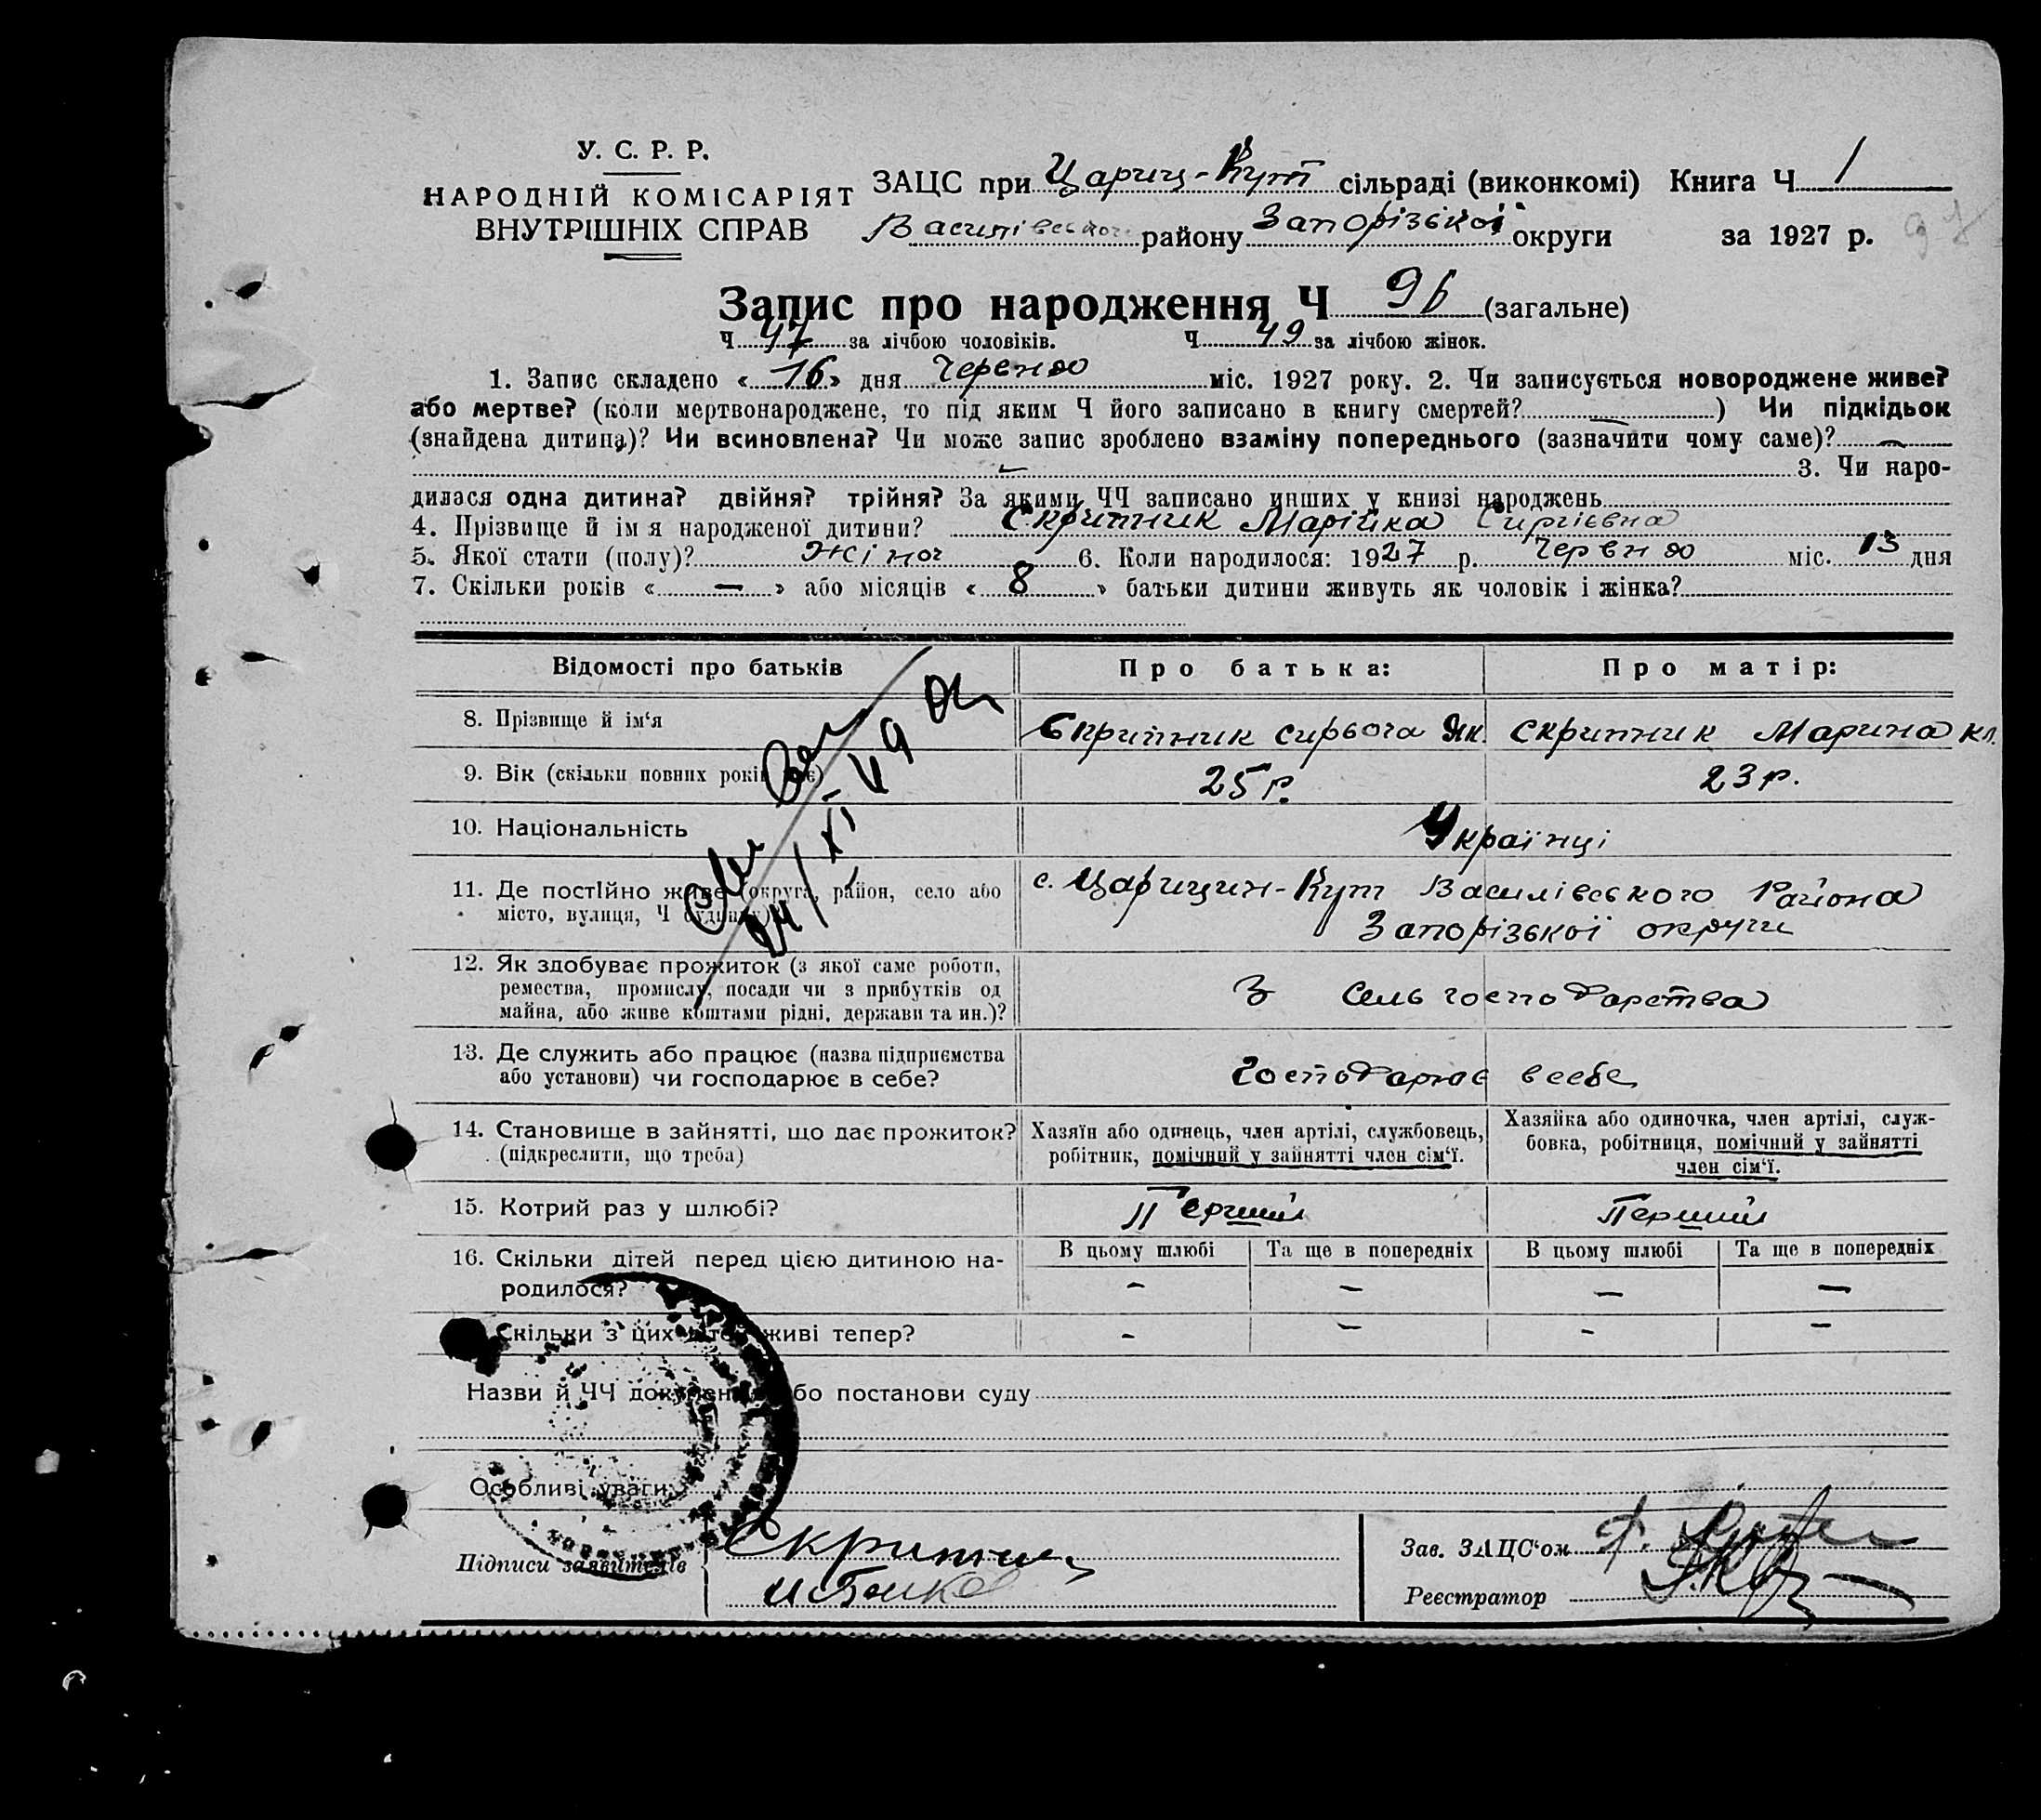 У. С. Р. Р.
НАРОДНІЙ КОМІСАРІЯТ
ВНУТРІШНІХ СПРАВ
ЗАЦС при Цариц-Кут сільраді (виконкомі) Книга Ч 1
Василівського району Запорізької округи за 1927 р. 97
Запис про народження Ч 96 (загальне)
Ч 47 за лічбою чоловіків. Ч 49 за лічбою жінок.
1. Запис складено «16» дня Червню міс. 1927 року. 2. Чи записується новороджене живе?
або мертве? (коли мертвонароджене, то під яким Ч його записано в книгу смертей? —) Чи підкідьок
(знайдена дитина)? Чи всиновлена? Чи може запис зроблено взаміну попереднього (зазначити чому саме)? —
3. Чи наро-
дилася одна дитина? двійня? трійня? За якими ЧЧ записано инших у книзі народжень
4. Прізвище й ім я народженої дитини? Скритник Марійка Сиргієвна
5. Якої стати (полу)? Жіноч 6. Коли народилося: 1927 р. Червню міс. 13 дня
7. Скільки років « — » або місяців « 8 » батьки дитини живуть як чоловік і жінка?
Відомості про батьків Про батька: Про матір:
8. Прізвище й ім'я Скритник Сирьога Як. Скритник Марина Кл.
9. Вік (скільки повних років 25 р. 23 р.
10. Національність Українці
11. Де постійно живе (округа, район, село або
місто, вулиця, Ч будинку) с. Царицин-Кут Василівського Района
Запорізької округи
12. Як здобуває прожиток (з якої саме роботи,
ремества, промислу, посади чи з прибутків од
майна, або живе коштами рідні, держави та ин.)? З Сель господарства
13. Де служить або працює (назва підприємства
або установи) чи господарює в себе? Господарює в себе
14. Становище в зайнятті, що дає прожиток?
(підкреслити, що треба)
Хазяїн або одинець, член артілі, службовець,
робітник, помічний у зайнятті член сім'ї.
Хазяйка або одиночка, член артілі, служ-
бовка, робітниця, помічний у зайнятті
член сім'ї.
15. Котрий раз у шлюбі? Перший Перший
16. Скільки дітей перед цією дитиною на-
родилося?
В цьому шлюбі Та ще в попередніх В цьому шлюбі Та ще в попередніх
— — — —
Скільки з цих дітей живі тепер? — — — —
Назви й ЧЧ документів або постанови суду
Особливі уваги
Підписи заявителів Скритник
Зав. ЗАЦС'ом
Реєстратор